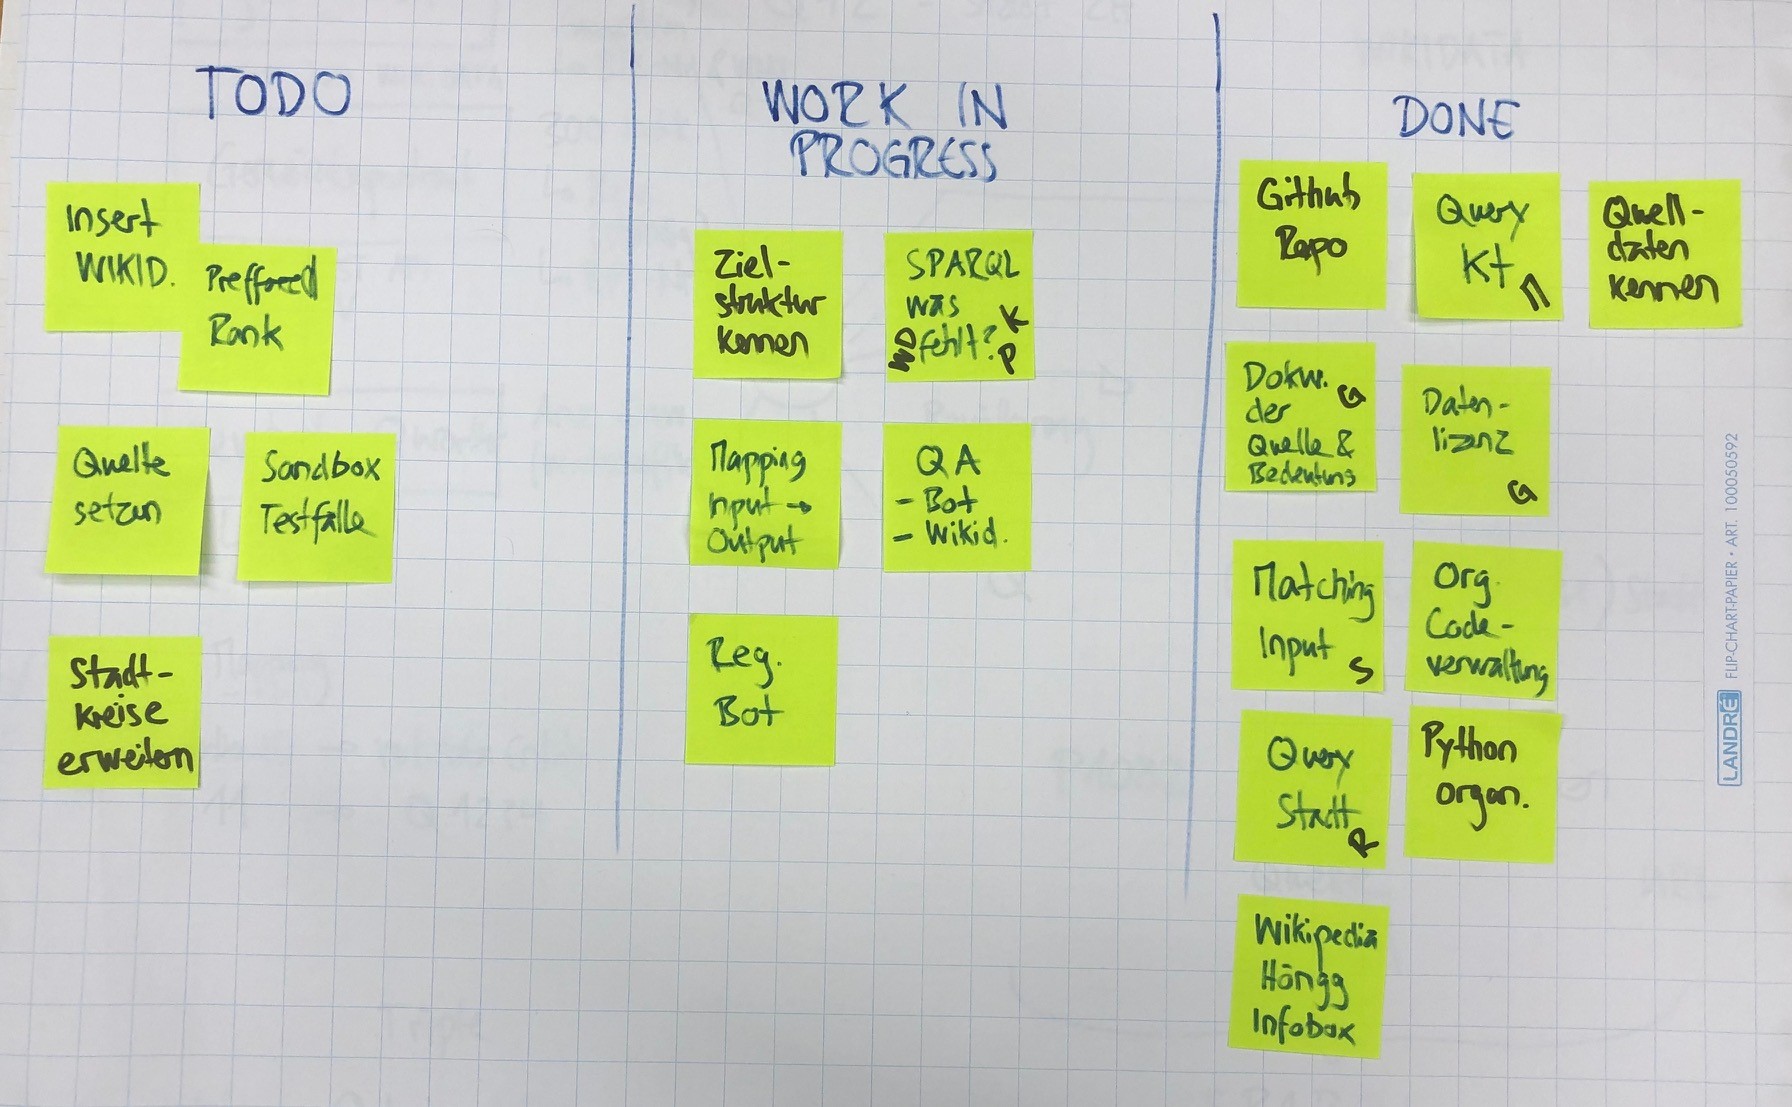 TODO
Insert
WIKID.
Preffered
Rank
Quelle
setzen
Sandbox
Testfälle
Stadt-
kreise
erweitern
WORK IN
PROGRESS
Ziel-
struktur
kennen
SPARQL
was
fehlt?
WD
K
P
Mapping
Input →
Output
QA
- Bot
- Wikid.
Reg.
Bot
DONE
Github
Repo
Query
Kt
M
Quell-
daten
kennen
Dokw. G
der
Quelle &
Bedeutung
Daten-
lizenz
G
Matching
Input S
Org.
Code-
verwaltung
Query
Stadt
R
Python
organ.
Wikipedia
Höngg
Infobox
LANDRÉ FLIP-CHART-PAPIER • ART. 100050592